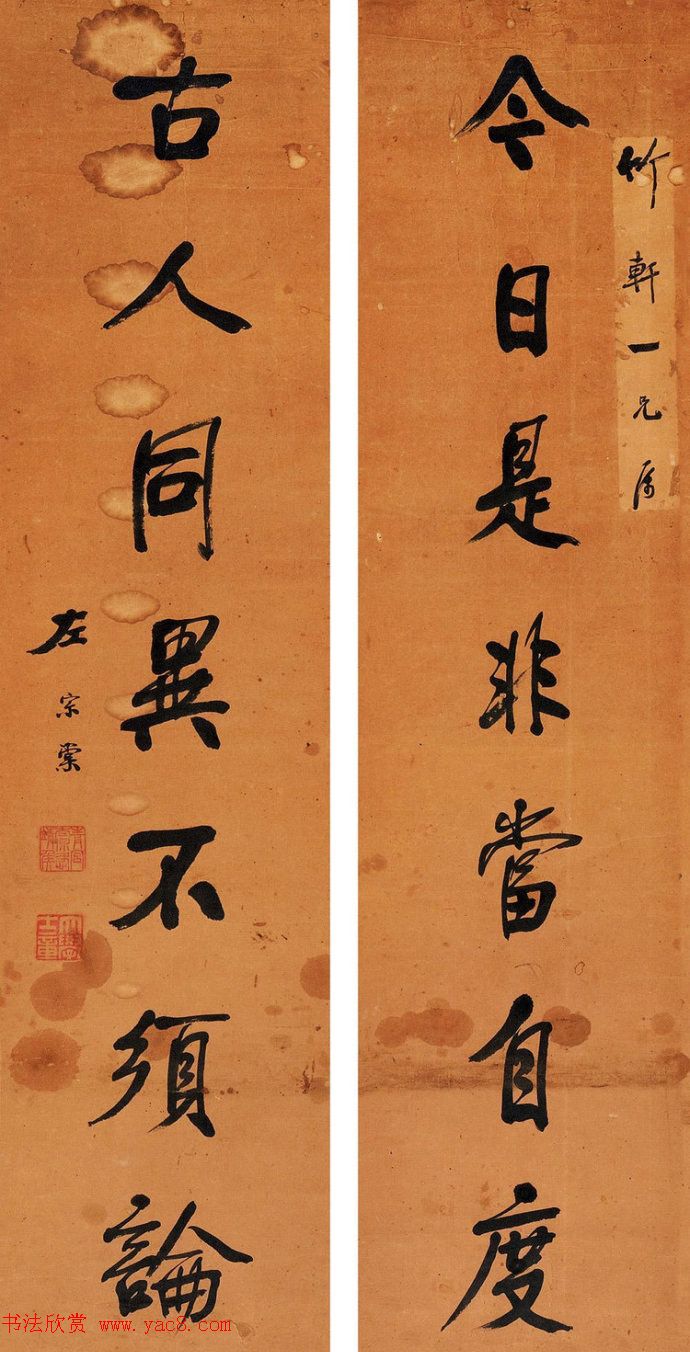 竹軒一兄属
今日是非當自度
古人同異不須論
左宗棠
书法欣赏 www.yac8.com